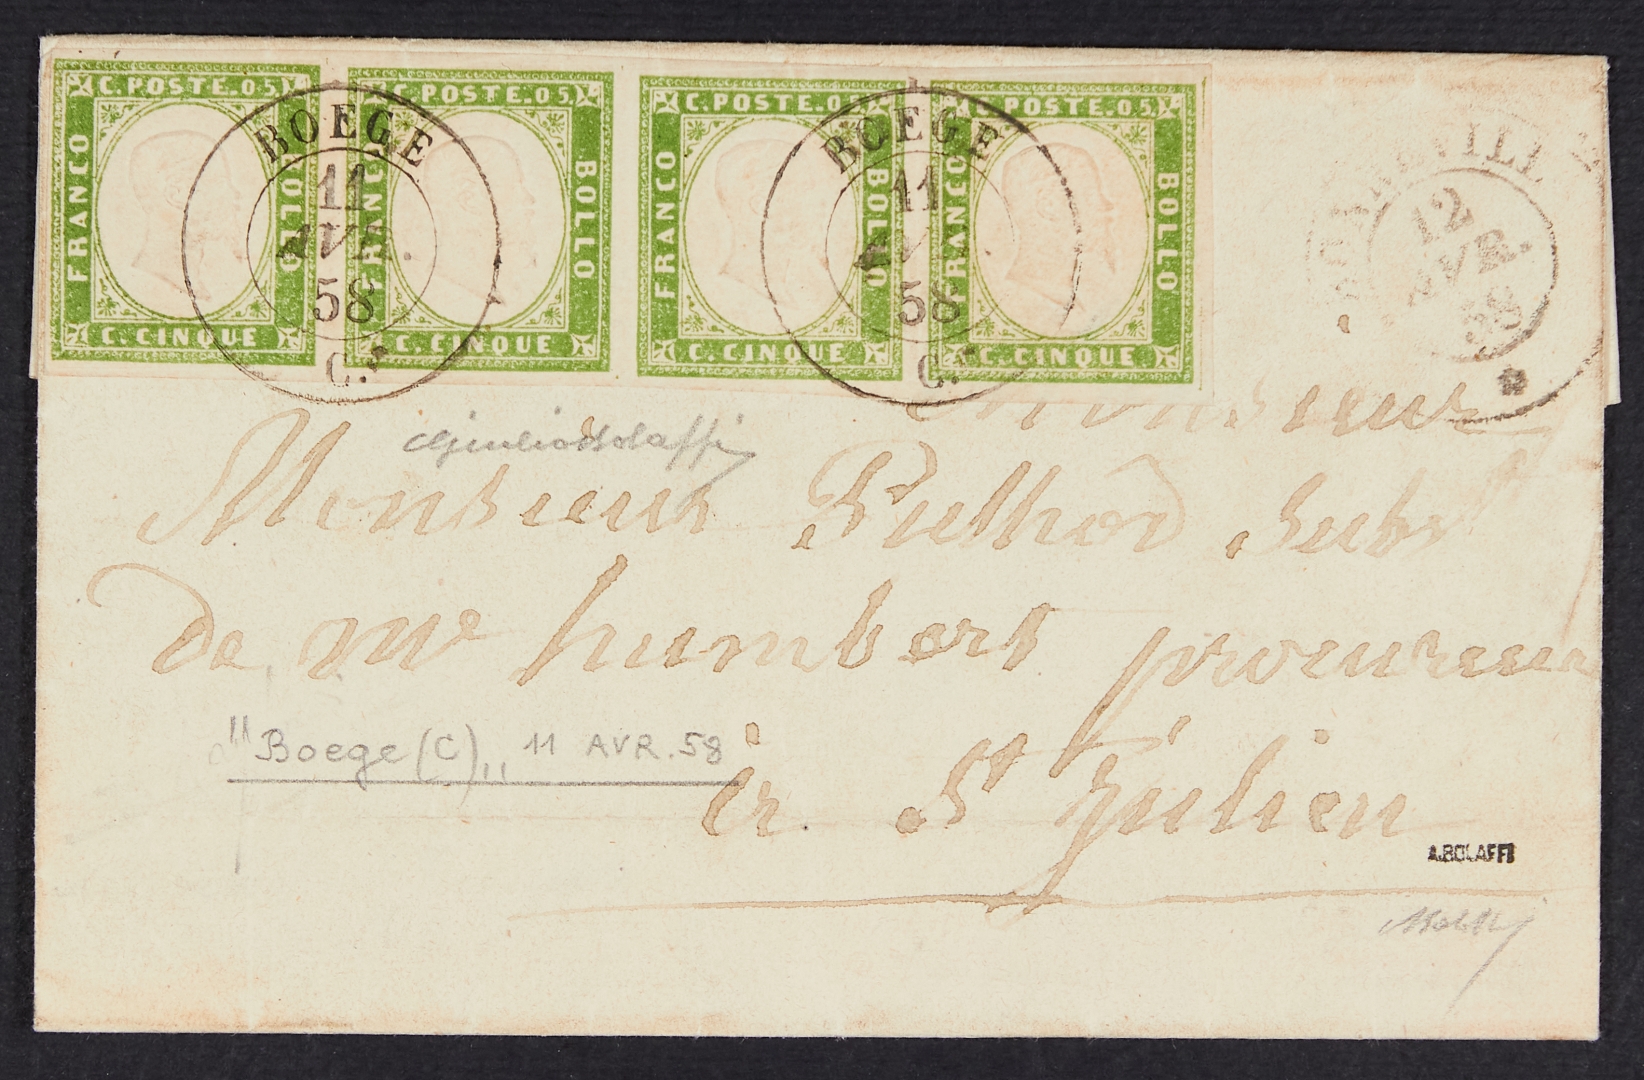 C. POSTE. 05
FRANCO
BOLLO
C. CINQUE
C. POSTE. 05
FRANCO
BOLLO
C. CINQUE
C. POSTE. 05
FRANCO
BOLLO
C. CINQUE
C. POSTE. 05
FRANCO
BOLLO
C. CINQUE
BOEGE
11
AVR.
58
C.
BOEGE
11
AVR.
58
C.
12
AVR.
58
Monsieur
Monsieur Pelhod Subs
De Mr humbert procureur
"Boege (C)„ 11 AVR. 58
à St Julien
A. BOLAFFI